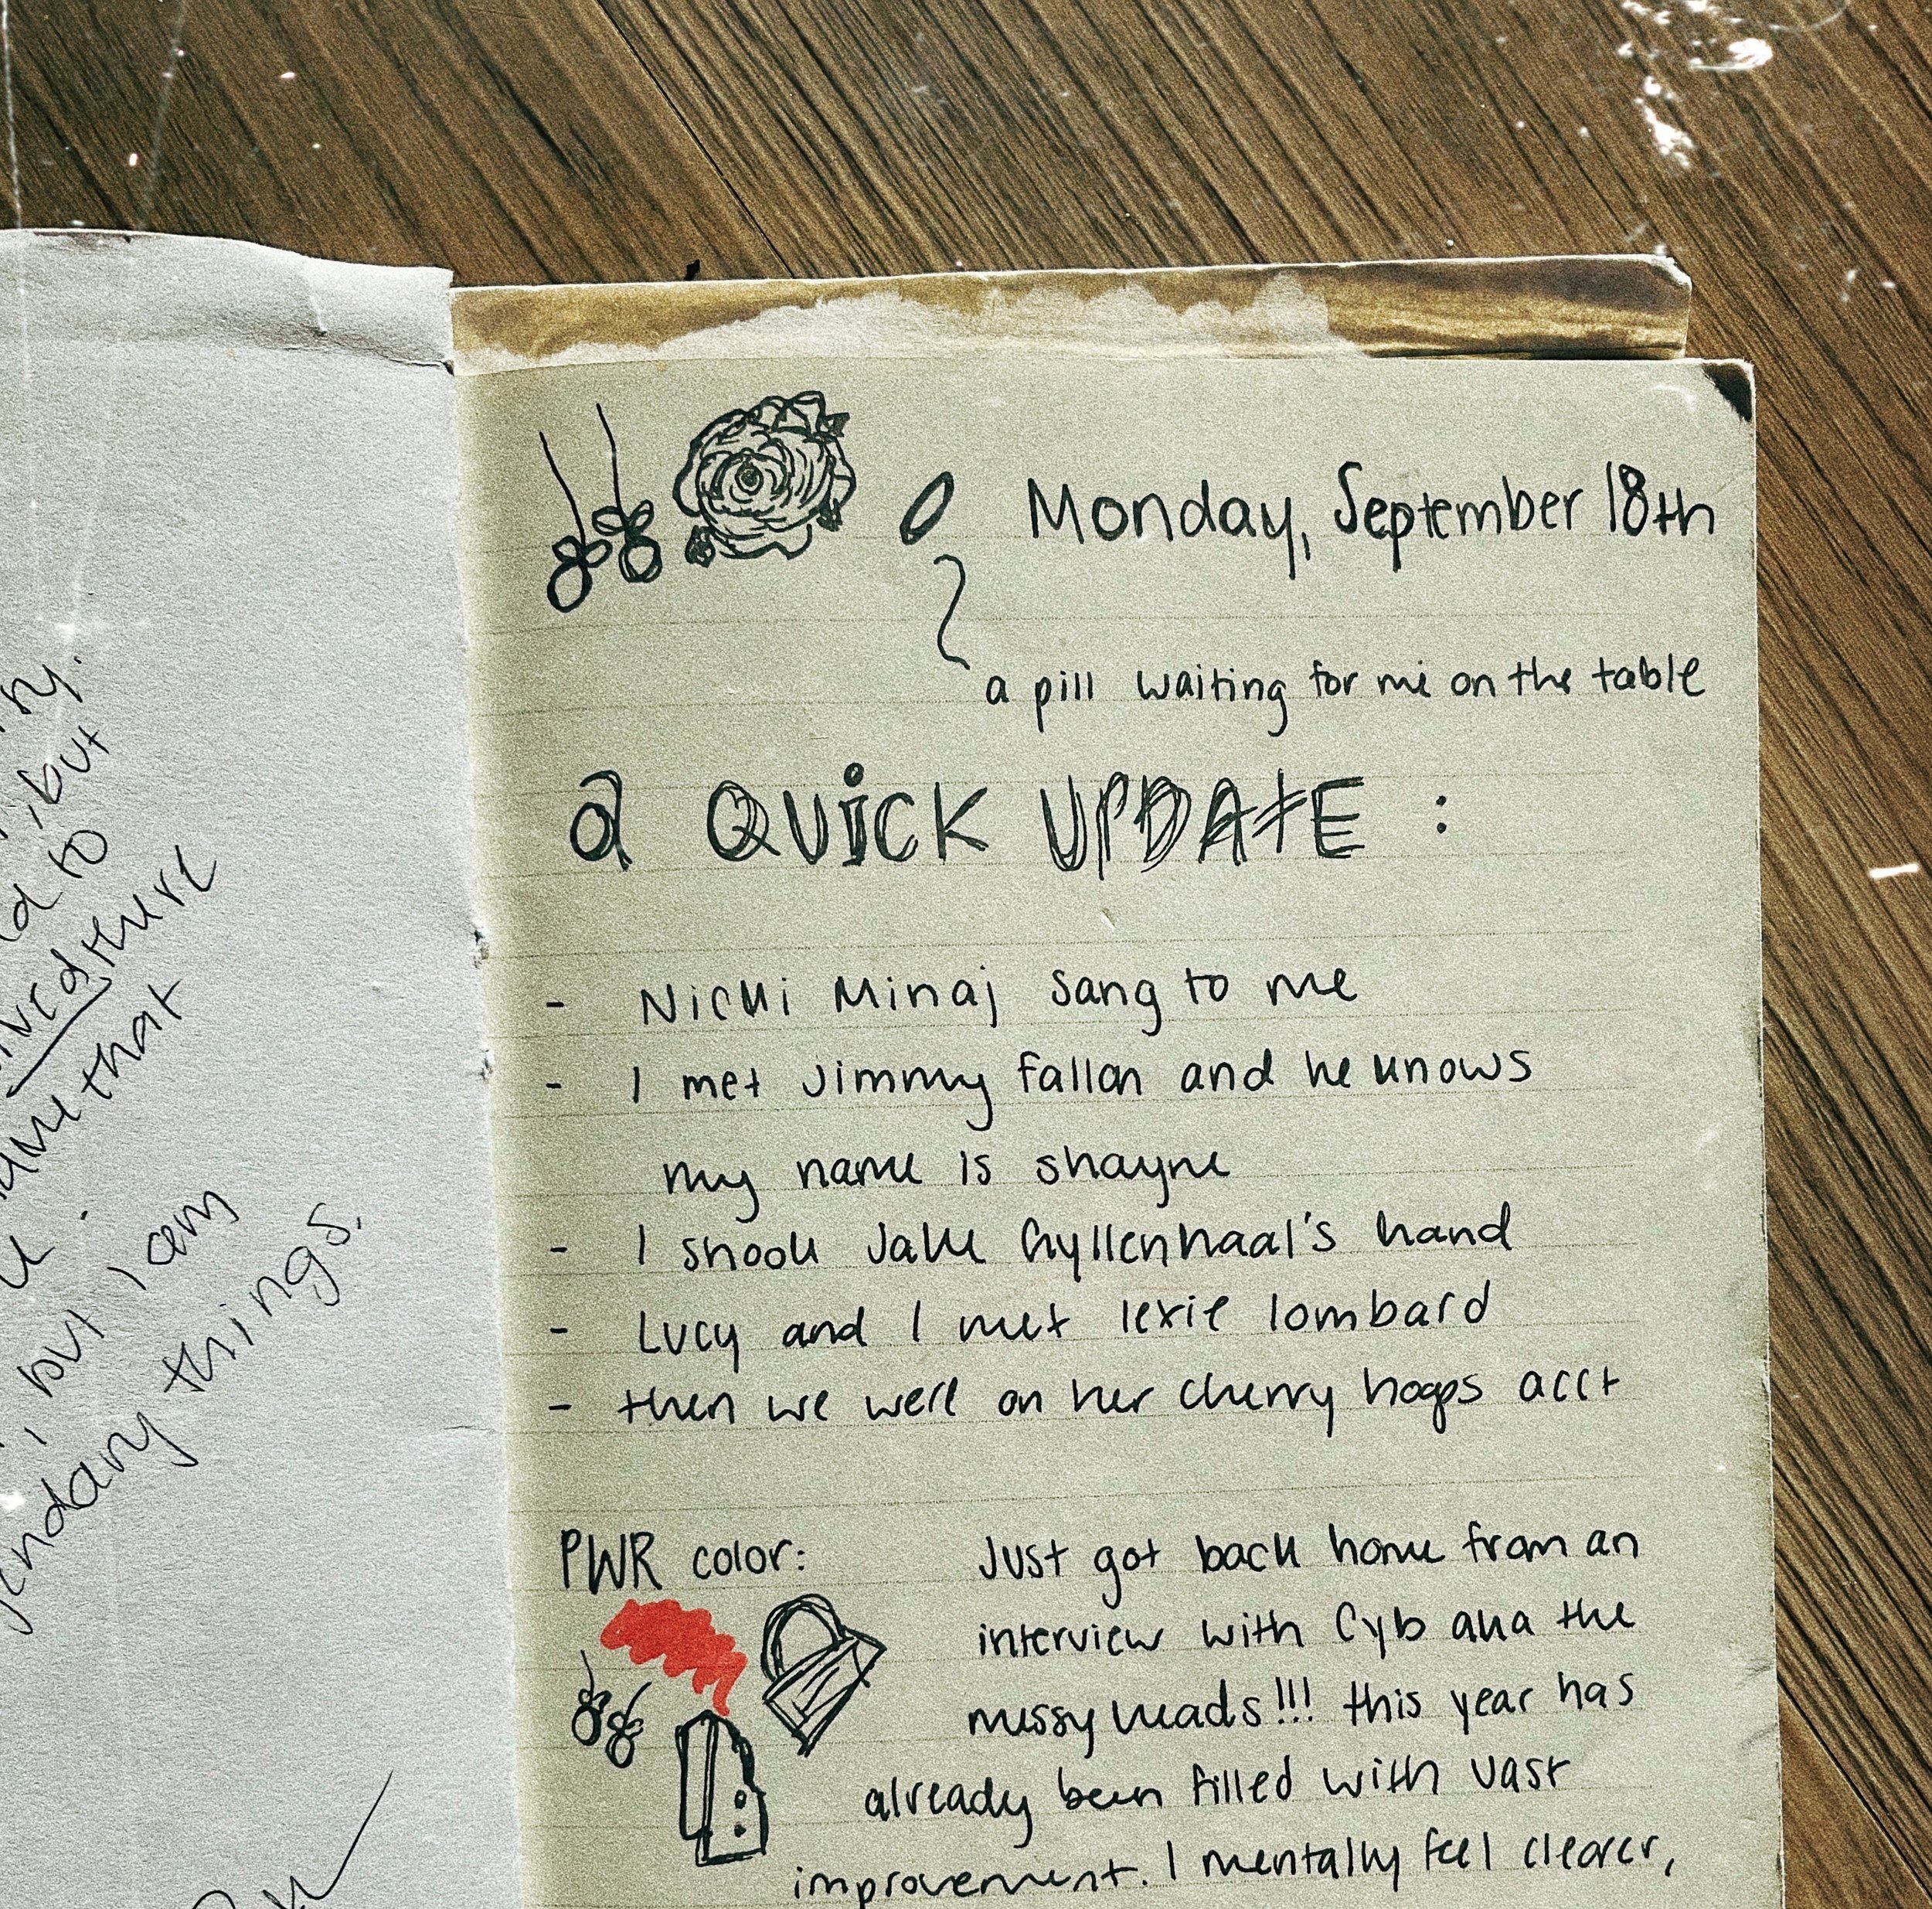 ny.
, but
d to
there
that
, but I am
things.
Monday, September 18th
a pill waiting for me on the table
a QUiCK UPDATE :
- Nicki Minaj sang to me
- I met Jimmy fallon and he knows
my name is shayne
- I shook Jake Gyllenhaal's hand
- Lucy and I met lexie lombard
- then we were on her cherry hoops acct
PWR color:
Just got back home from an
interview with Cyb and the
messy heads!!! this year has
already been filled with vast
improvement. I mentally feel clearer,